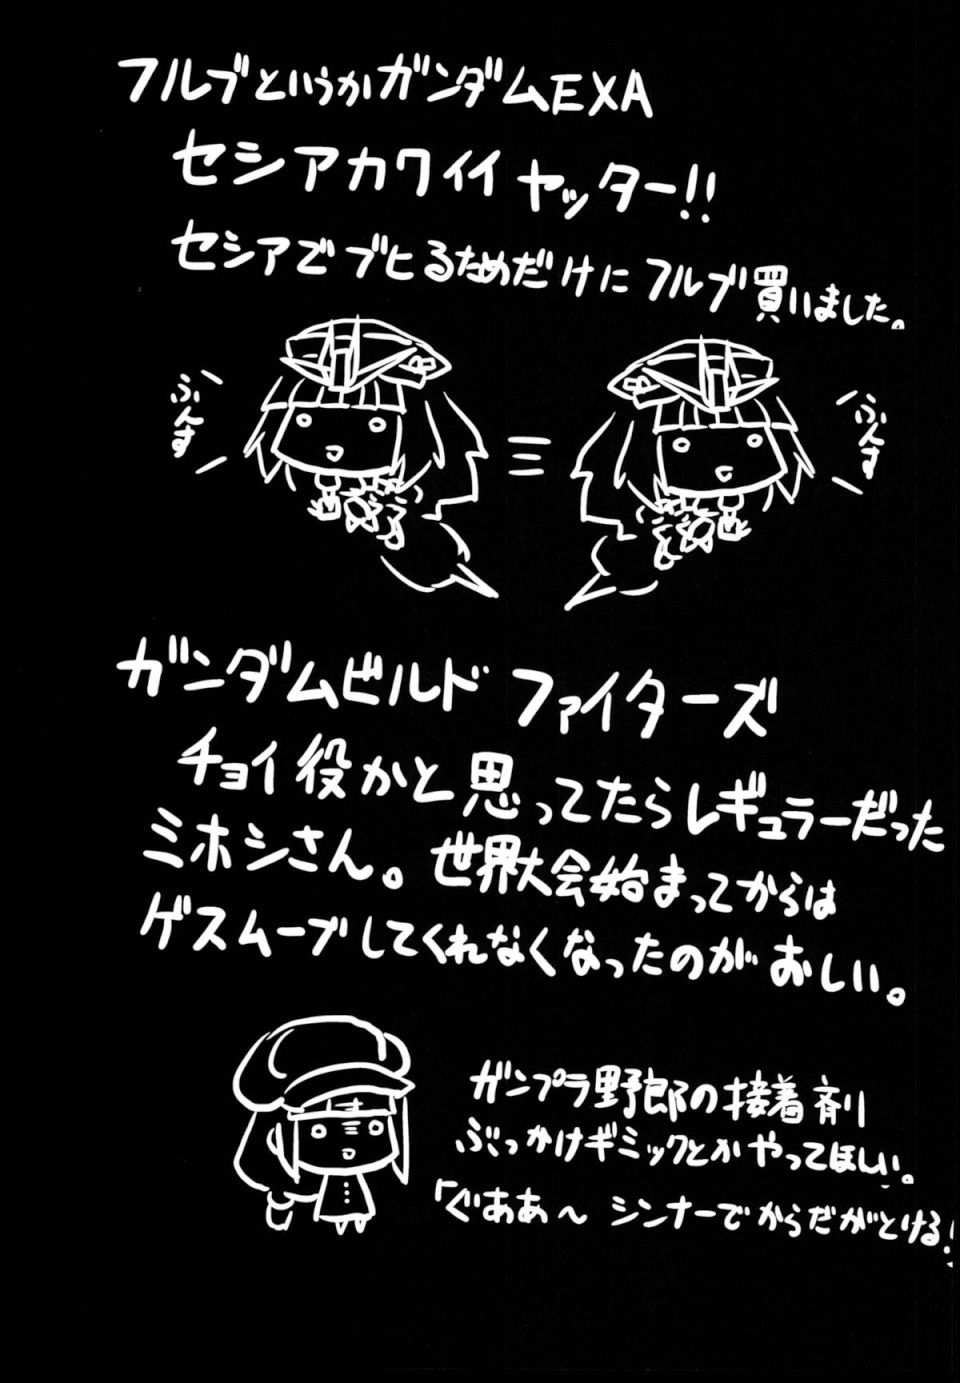 フルブというかガンダムEXA
セシアカワイイ ヤッター!!
セシアでブヒるためだけに フルブ買いました。
ぷんす
ぷんす
ガンダムビルド ファイターズ
チョイ役かと思ってたらレギュラーだった
ミホシさん。世界大会始まってからは
ゲスムーブしてくれなくなったのが おしい。
ガンプラ野郎の接着剤
ぶっかけギミックとか やってほしい。
「ぐああ〜 シンナーで からだがとける!